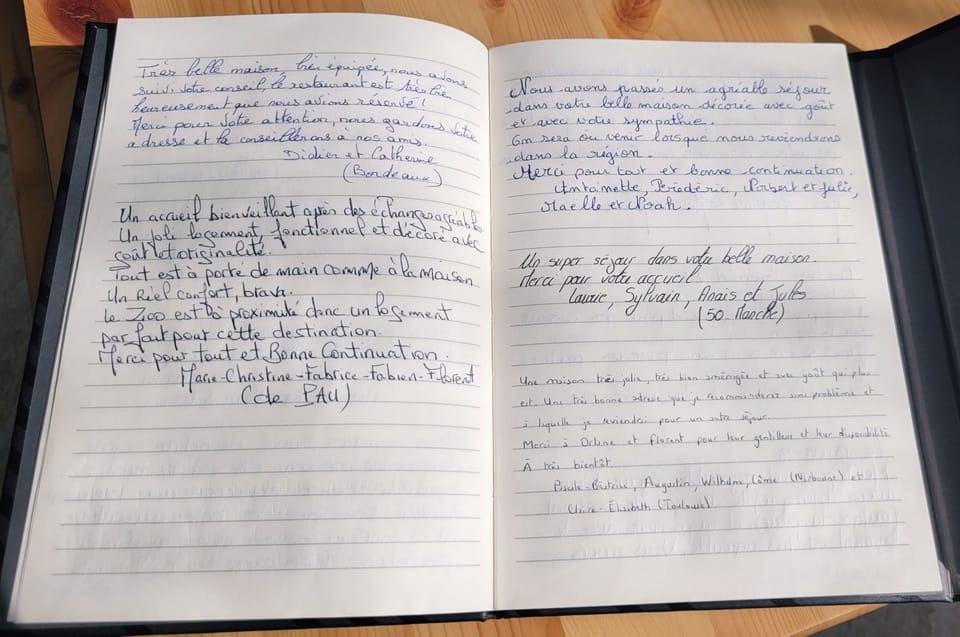 Très belle maison, bien équipée, nous avons
suivi votre conseil, le restaurant est très bien
heureusement que nous avions réservé !
Merci pour votre attention, nous gardons votre
adresse et la conseillerons à nos amis.
Didier et Catherine
(Bordeaux)
Un accueil bienveillant après des échanges agréables.
Un joli logement, fonctionnel et décoré avec
goût et originalité.
Tout est à porté de main comme à la maison
Un Réel confort, bravo.
Le Zoo est à proximité donc un logement
parfait pour cette destination.
Merci pour tout et Bonne Continuation.
Marie-Christine-Fabrice-Fabien-Florent
(de PAU)
Nous avons passés un agréable séjour
dans votre belle maison décorée avec goût
et avec votre sympathie.
On sera où venir lorsque nous reviendrons
dans la région.
Merci pour tout et bonne continuation.
Antoinette, Frédéric, Norbert et Julie,
Maelle et Noah.
Un super séjour dans votre belle maison.
Merci pour votre accueil
Laurie, Sylvain, Anaïs et Jules
(50-Manche)
Une maison très jolie, très bien aménagée et avec goût qui plus
est. Une très bonne adresse que je recommanderai sans problème et
à laquelle je reviendrai pour un autre séjour.
Merci à et Florent pour leur gentillesse et leur disponibilité
À très bientôt.
Augustin, Wilhelm, Côme (Narbonne) et
Claire-Elisabeth (Toulouse)